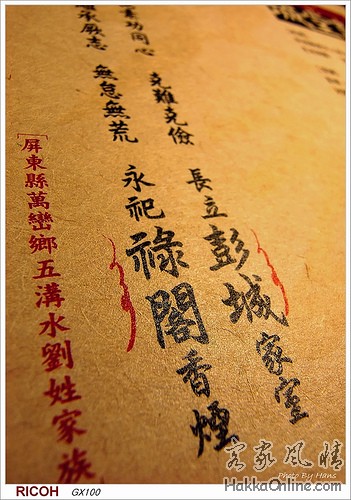 功同心 克難克儉 長立彭城家室
承厥志 無怠無荒 永祀祿閣香煙
屏東縣萬巒鄉五溝水劉姓家族
客家風情
Photo By Hans
HakkaOnline.com
RICOH GX100